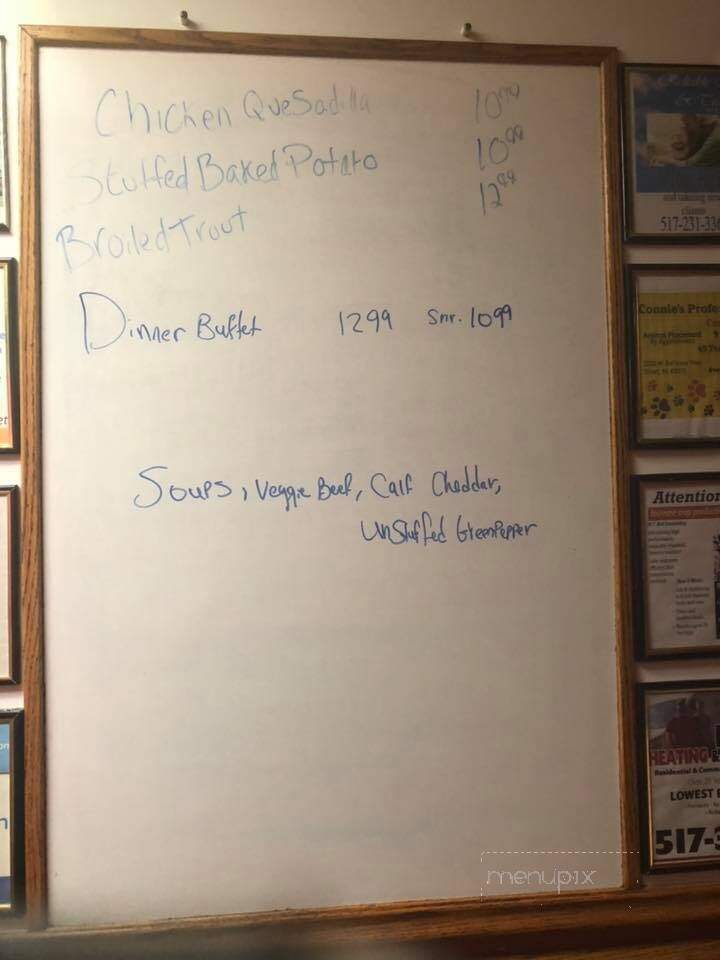 Chicken Quesadilla 10.99
Stuffed Baked Potato 10.99
Broiled Trout 12.99
Dinner Buffet 1299 Snr. 1099
Soups, Veggie Beef, Calf Cheddar,
UnStuffed GreenPepper
517-231-33
Connie's Profe
Attention
HEATING
Residential & Comm
LOWEST
517-3
menupix